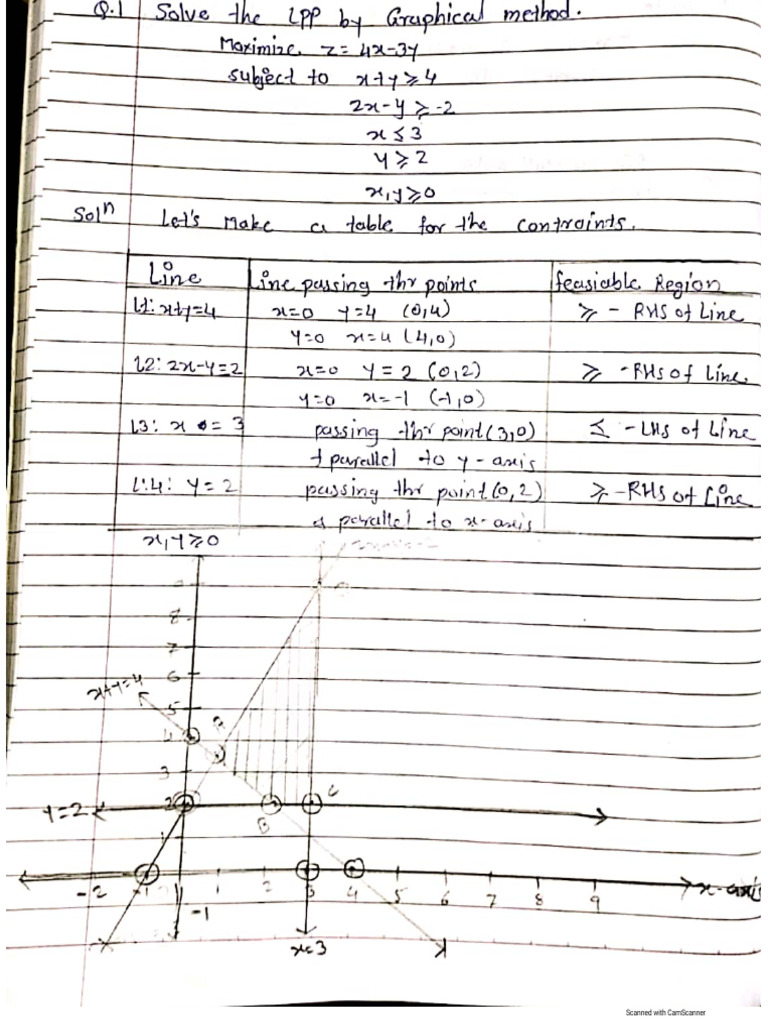 Q.1 Solve the LPP by Graphical method.
Maximize z = 4x-3y
subject to x+y ≥ 4
2x-y ≥ -2
x ≤ 3
y ≥ 2
x,y ≥ 0
Solⁿ Let's make a table for the contraints.
Line Line passing thr points feasiable Region
L1: x+y=4 x=0 y=4 (0,4) ≥ - RHS of Line
y=0 x=4 (4,0)
L2: 2x-y=2 x=0 y=2 (0,2) ≥ -RHS of Line
y=0 x=-1 (-1,0)
L3: x = 3 passing thr point (3,0) ≤ -LHS of Line
+ parallel to y-axis
L:4: y=2 passing thr point (0,2) ≥ -RHS of Line
& parallel to x-axis
x,y ≥ 0
8
7
6
x+y=4
5
A
4
3
y=2 2 C
B
1
-2 -1 1 2 3 4 5 6 7 8 9 x-axis
-1
x=3
Scanned with CamScanner